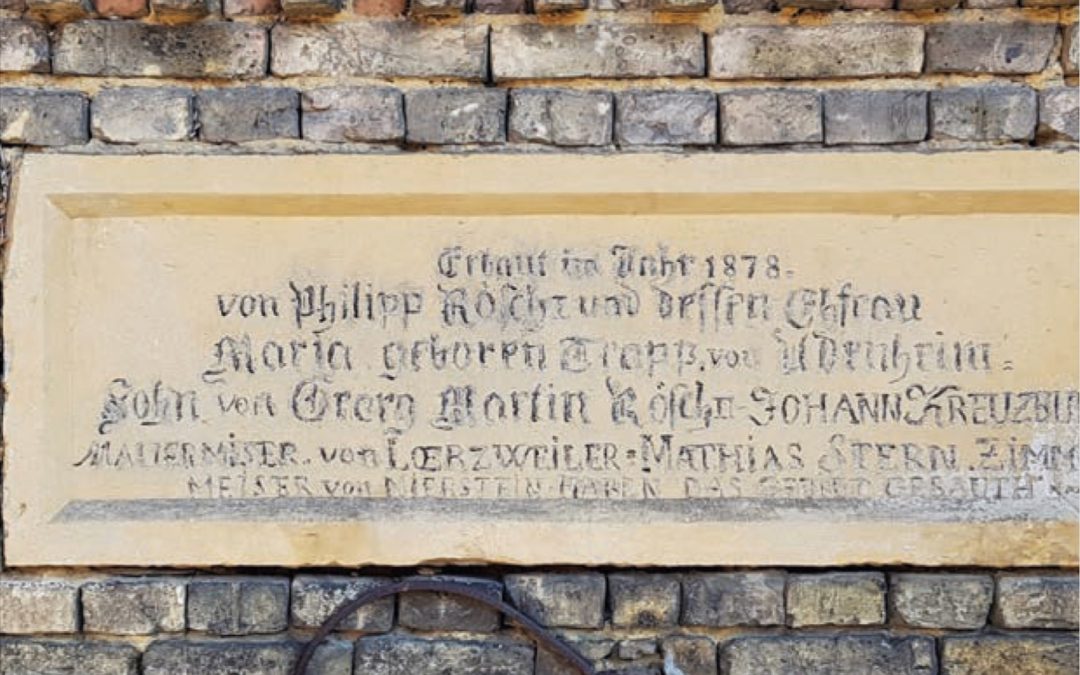 Erbaut im Jahr 1878.
von Philipp Röschr und dessen Ehfrau
Maria geboren Trapp. von Udenheim.
Sohn von Georg Martin Rösch JOHANN KREUZBU
MAUERMISER. von LŒRZWEILER = MATHIAS STERN. ZIMM
MEISER von NIERSTEIN HABEN DAS